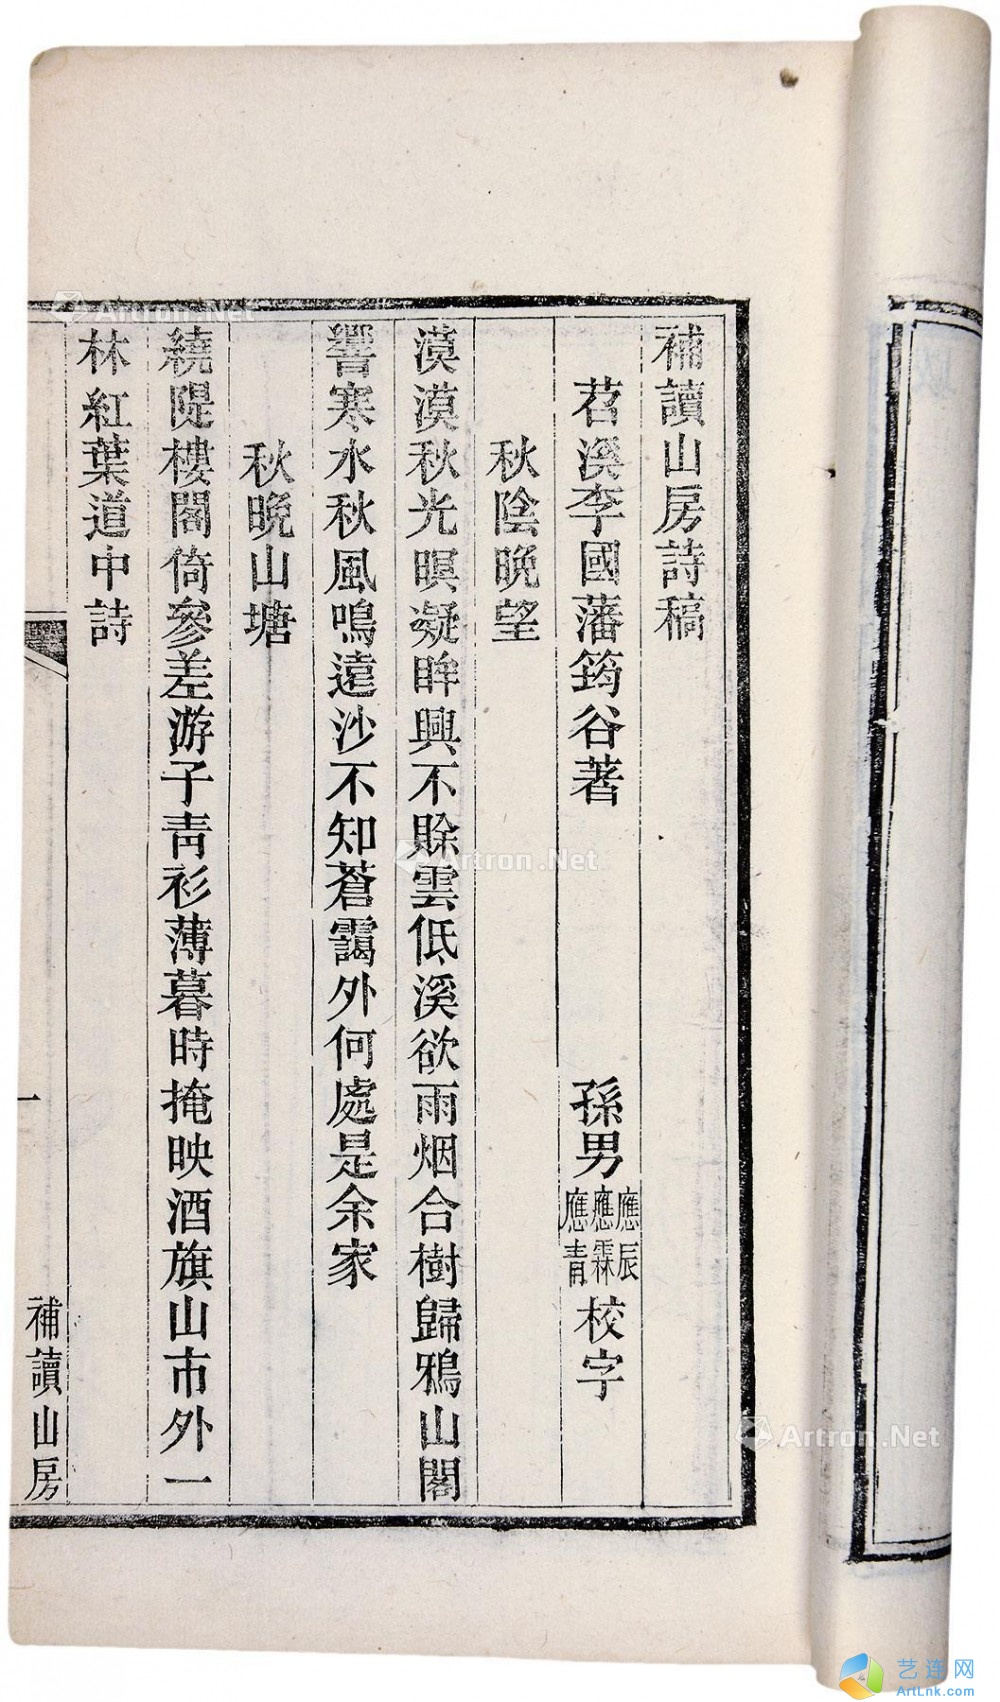 補讀山房詩稿
苕溪李國藩筠谷著 孫男應辰應霖應青校字
秋陰晚望
漠漠秋光暝凝眸興不賖雲低溪欲雨烟合樹歸鴉山閣
響寒水秋風鳴遠沙不知蒼靄外何處是余家
秋晚山塘
繞隄樓閣倚參差游子青衫薄暮時掩映酒旗山市外一
林紅葉道中詩
一
補讀山房
Artron.Net
Artron.Net
Artron.Net
艺连网
ArtLnk.com